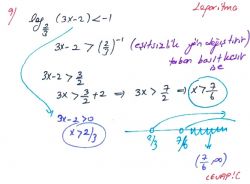 9)
Logaritma
log_{2/3} (3x-2) < -1
3x-2 > (2/3)^{-1} (eşitsizlik yön değiştirir
taban basit kesir
3x-2 > 3/2
3x > 3/2 + 2 ⇒ 3x > 7/2 ⇒ x > 7/6
3x-2 > 0
x > 2/3
2/3 7/6
(7/6, ∞)
CEVAP: C